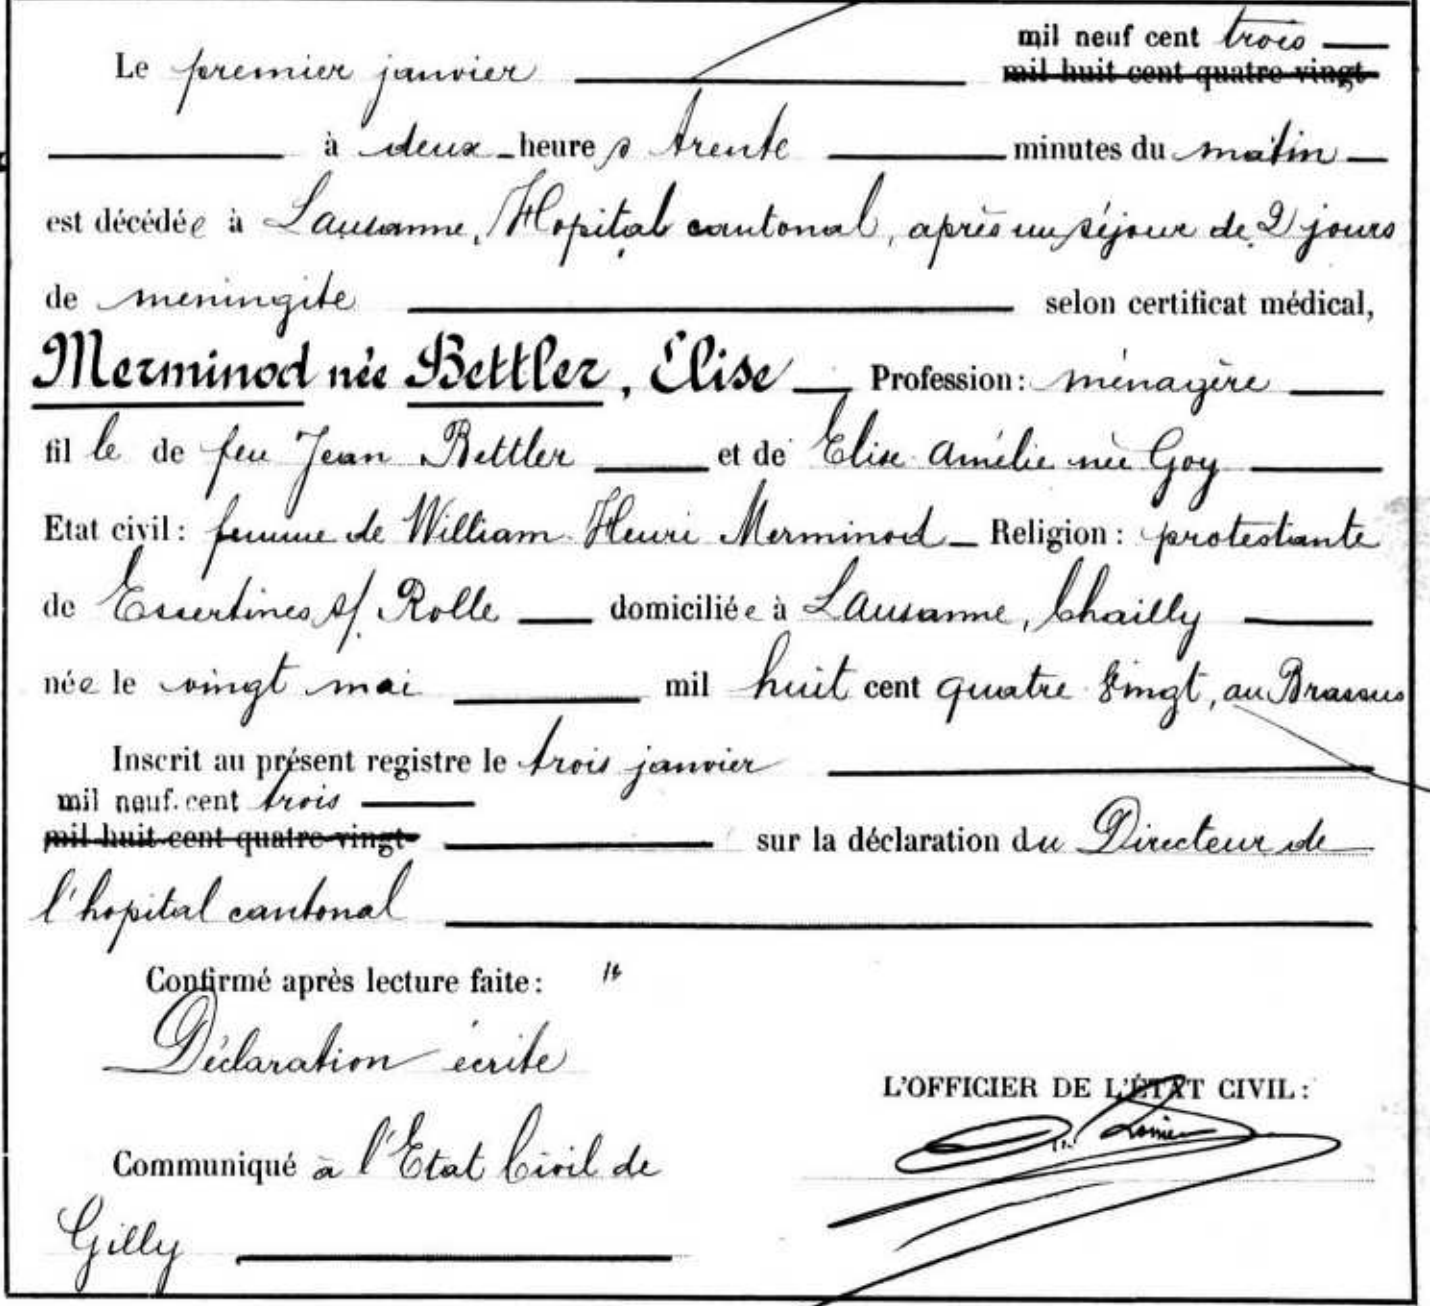 mil neuf cent trois
Le premier janvier mil huit cent quatre-vingt
à deux heures trente minutes du matin
est décédée à Lausanne, Hopital cantonal, après un séjour de 2 jours
de meningite selon certificat médical,
Merminod née Bettler, Élise Profession: ménagère
fille de feu Jean Bettler et de Elise Amélie née Goy
Etat civil: femme de William Henri Merminod Religion: protestante
de Essertines s/ Rolle domiciliée à Lausanne, Chailly
née le vingt mai mil huit cent quatre vingt, au Brassus
Inscrit au présent registre le trois janvier
mil neuf cent trois
mil huit cent quatre-vingt sur la déclaration du Directeur de
l'hopital cantonal
Confirmé après lecture faite:
Déclaration écrite
L'OFFICIER DE L'ÉTAT CIVIL:
Communiqué à l'Etat Civil de
Gilly